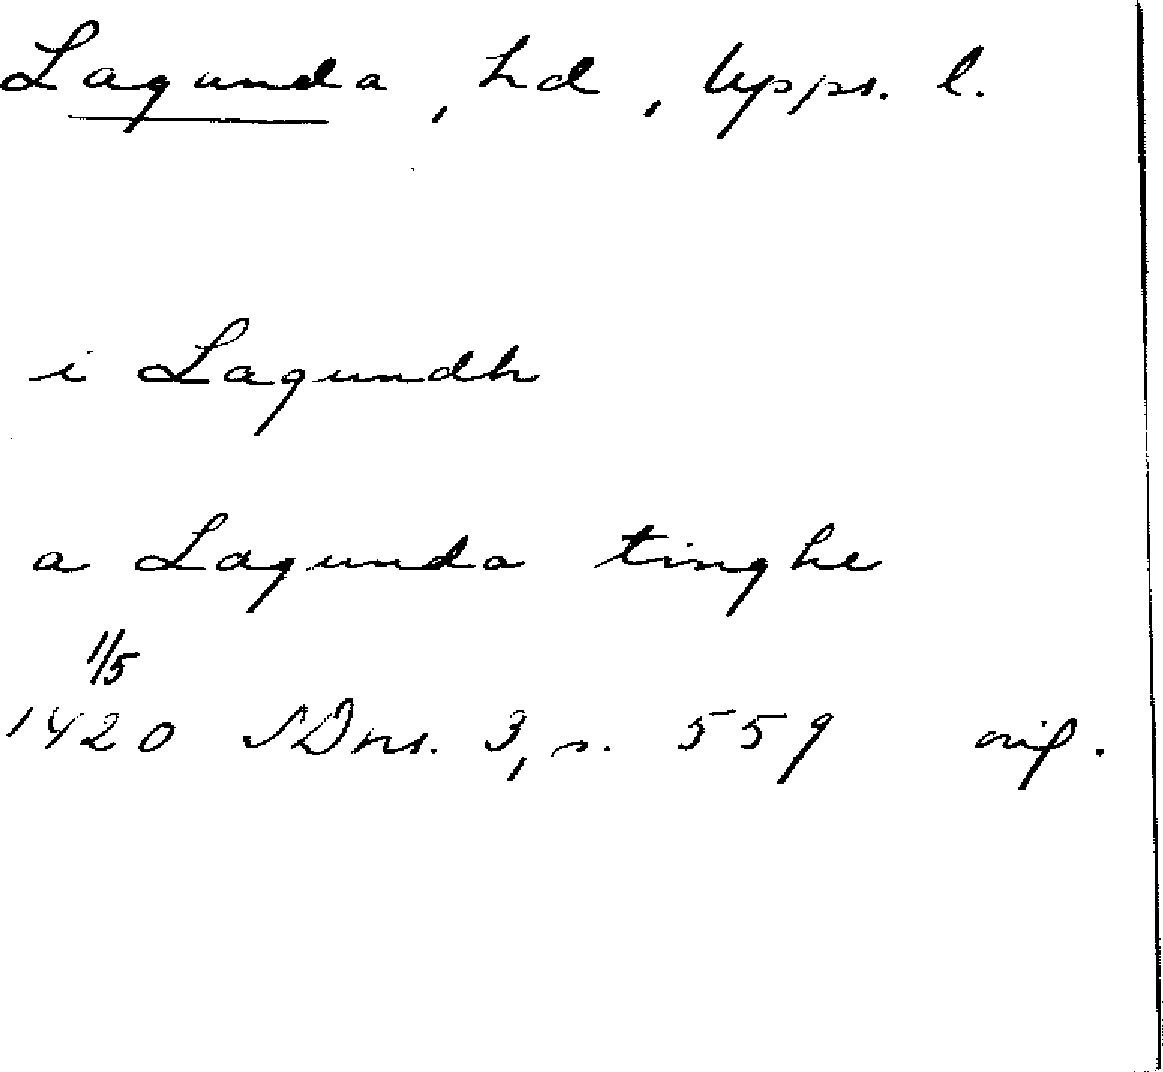 Lagunda, hd, Upps. l.
i Lagundh
a Lagunda tinghe
1/5
1420 SDns. 3, s. 559 orig.